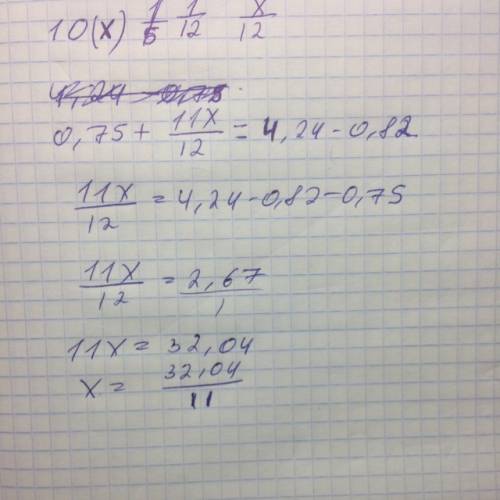 10(x) 1/5 1/12 x/12
0,75 + 11x/12 = 4,24 - 0,82
11x/12 = 4,24 - 0,82 - 0,75
11x/12 = 2,67/1
11x = 32,04
x = 32,04/11